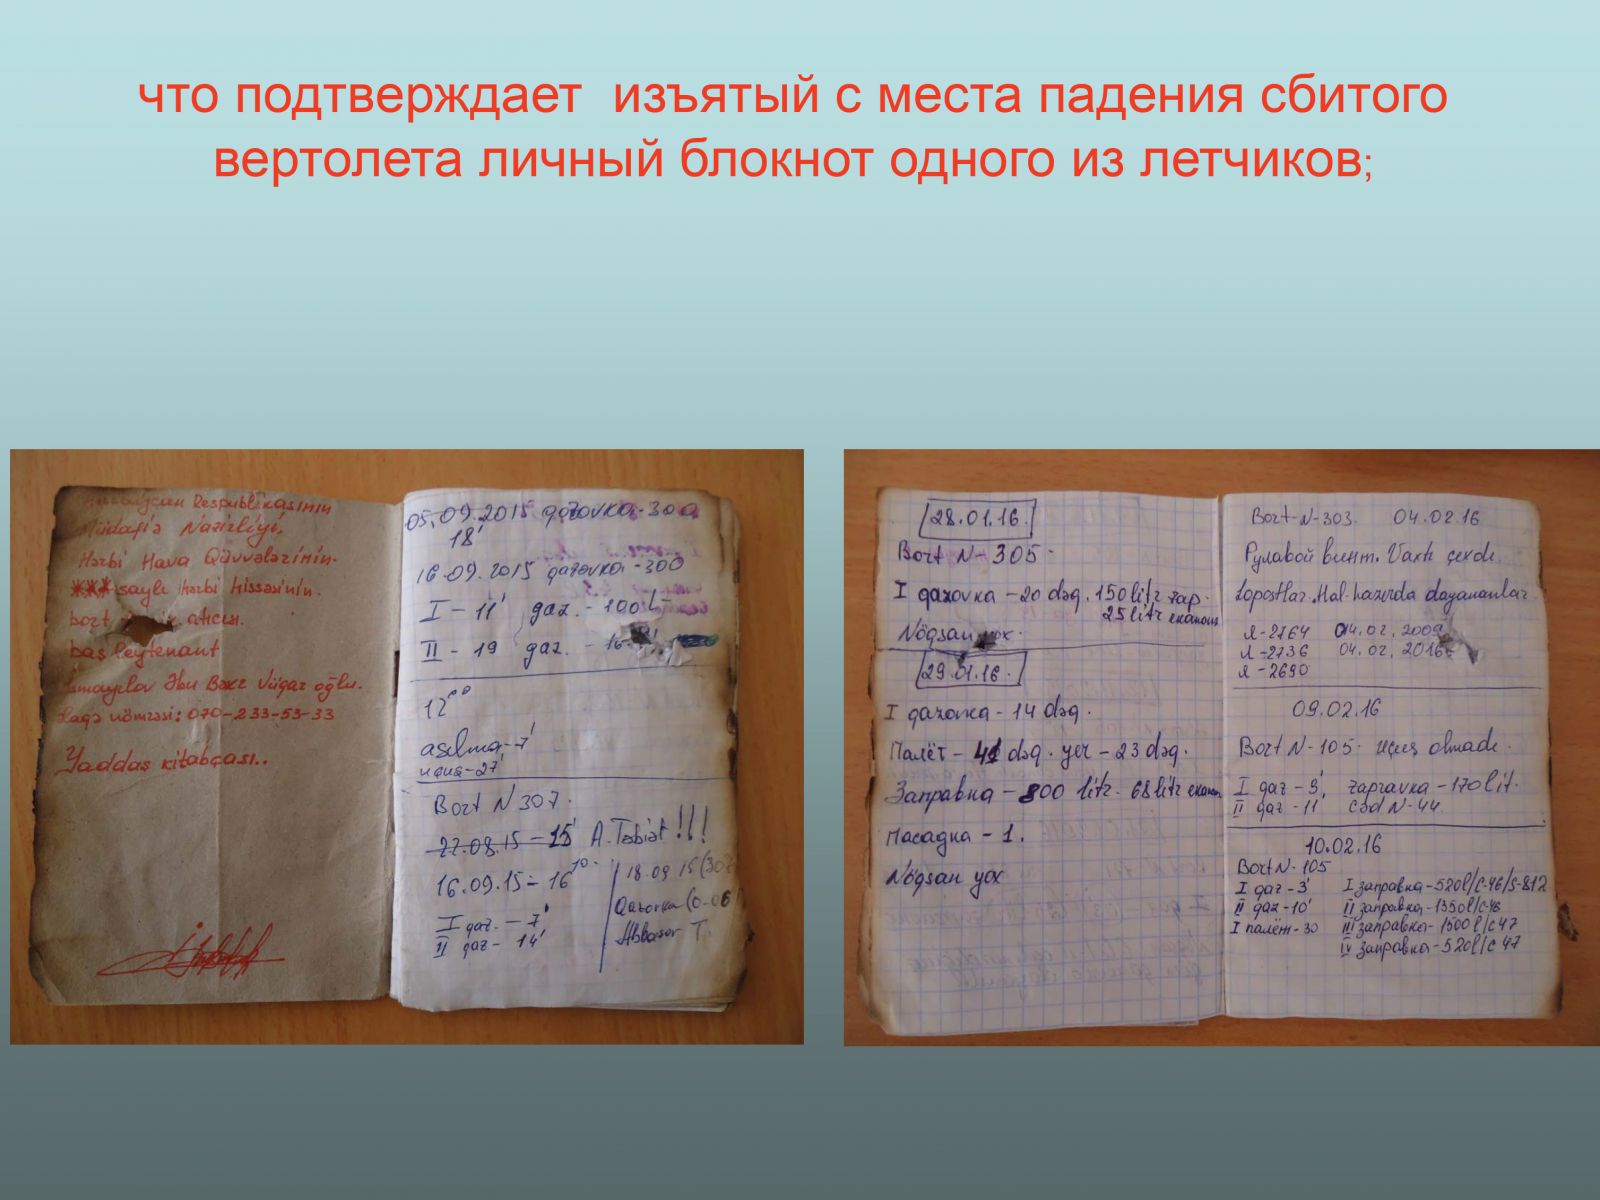 что подтверждает изъятый с места падения сбитого
вертолета личный блокнот одного из летчиков;
Respublikasının
Müdafiə Nazirliyi,
Hərbi Hava Qüvvələrinin.
saylı hərbi hissəsinin.
bort atıcısı.
baş leytenant
Əbu Bəkr Vüqar oğlu.
nömrəsi: 070-233-53-33
Yaddaş kitabçası..
05.09.2015 qazovka-300
18'
16.09.2015 qazovka-300
I - 11' qaz. - 100 L
II - 19 qaz. -
12⁰⁰
asılma-7'
uçuş-27'
Bort N 307.
22.08.15-15' A.Təbiət!!!
16.09.15- 16¹⁰·
I qaz. - 7'
II qaz - 14'
18.09 15
Qazovka
Abbasov T.
28.01.16.
Bort N-305.
I qazovka-20 dəq. 150 litr zap.
25 litr
Nöqsan yox.
29.01.16.
I qazovka-14 dəq.
Палёт- 41 dəq. yer-23 dəq.
Заправка-800 litr. 68 litr
Пасадка-1.
Nöqsan yox
Bort-N-303. 04.02.16
Рулавой винт. Vaxtı
Lopostlar. Hal-hazırda dayananlar.
Л-2764 04.02.2009
Л-2736 04.02.2016
Л-2690
09.02.16
Bort N-105. uçuş olmadı.
I qaz-9', zapravka-170 lit.
II qaz-11' N-44.
10.02.16
Bort N-105
I qaz-3' I заправка-520l/C-46/S-812
II qaz-10' II заправка-1350l/C-46
I палёт-30 III заправка-1500l/C 47
IV заправка-520l/C 47